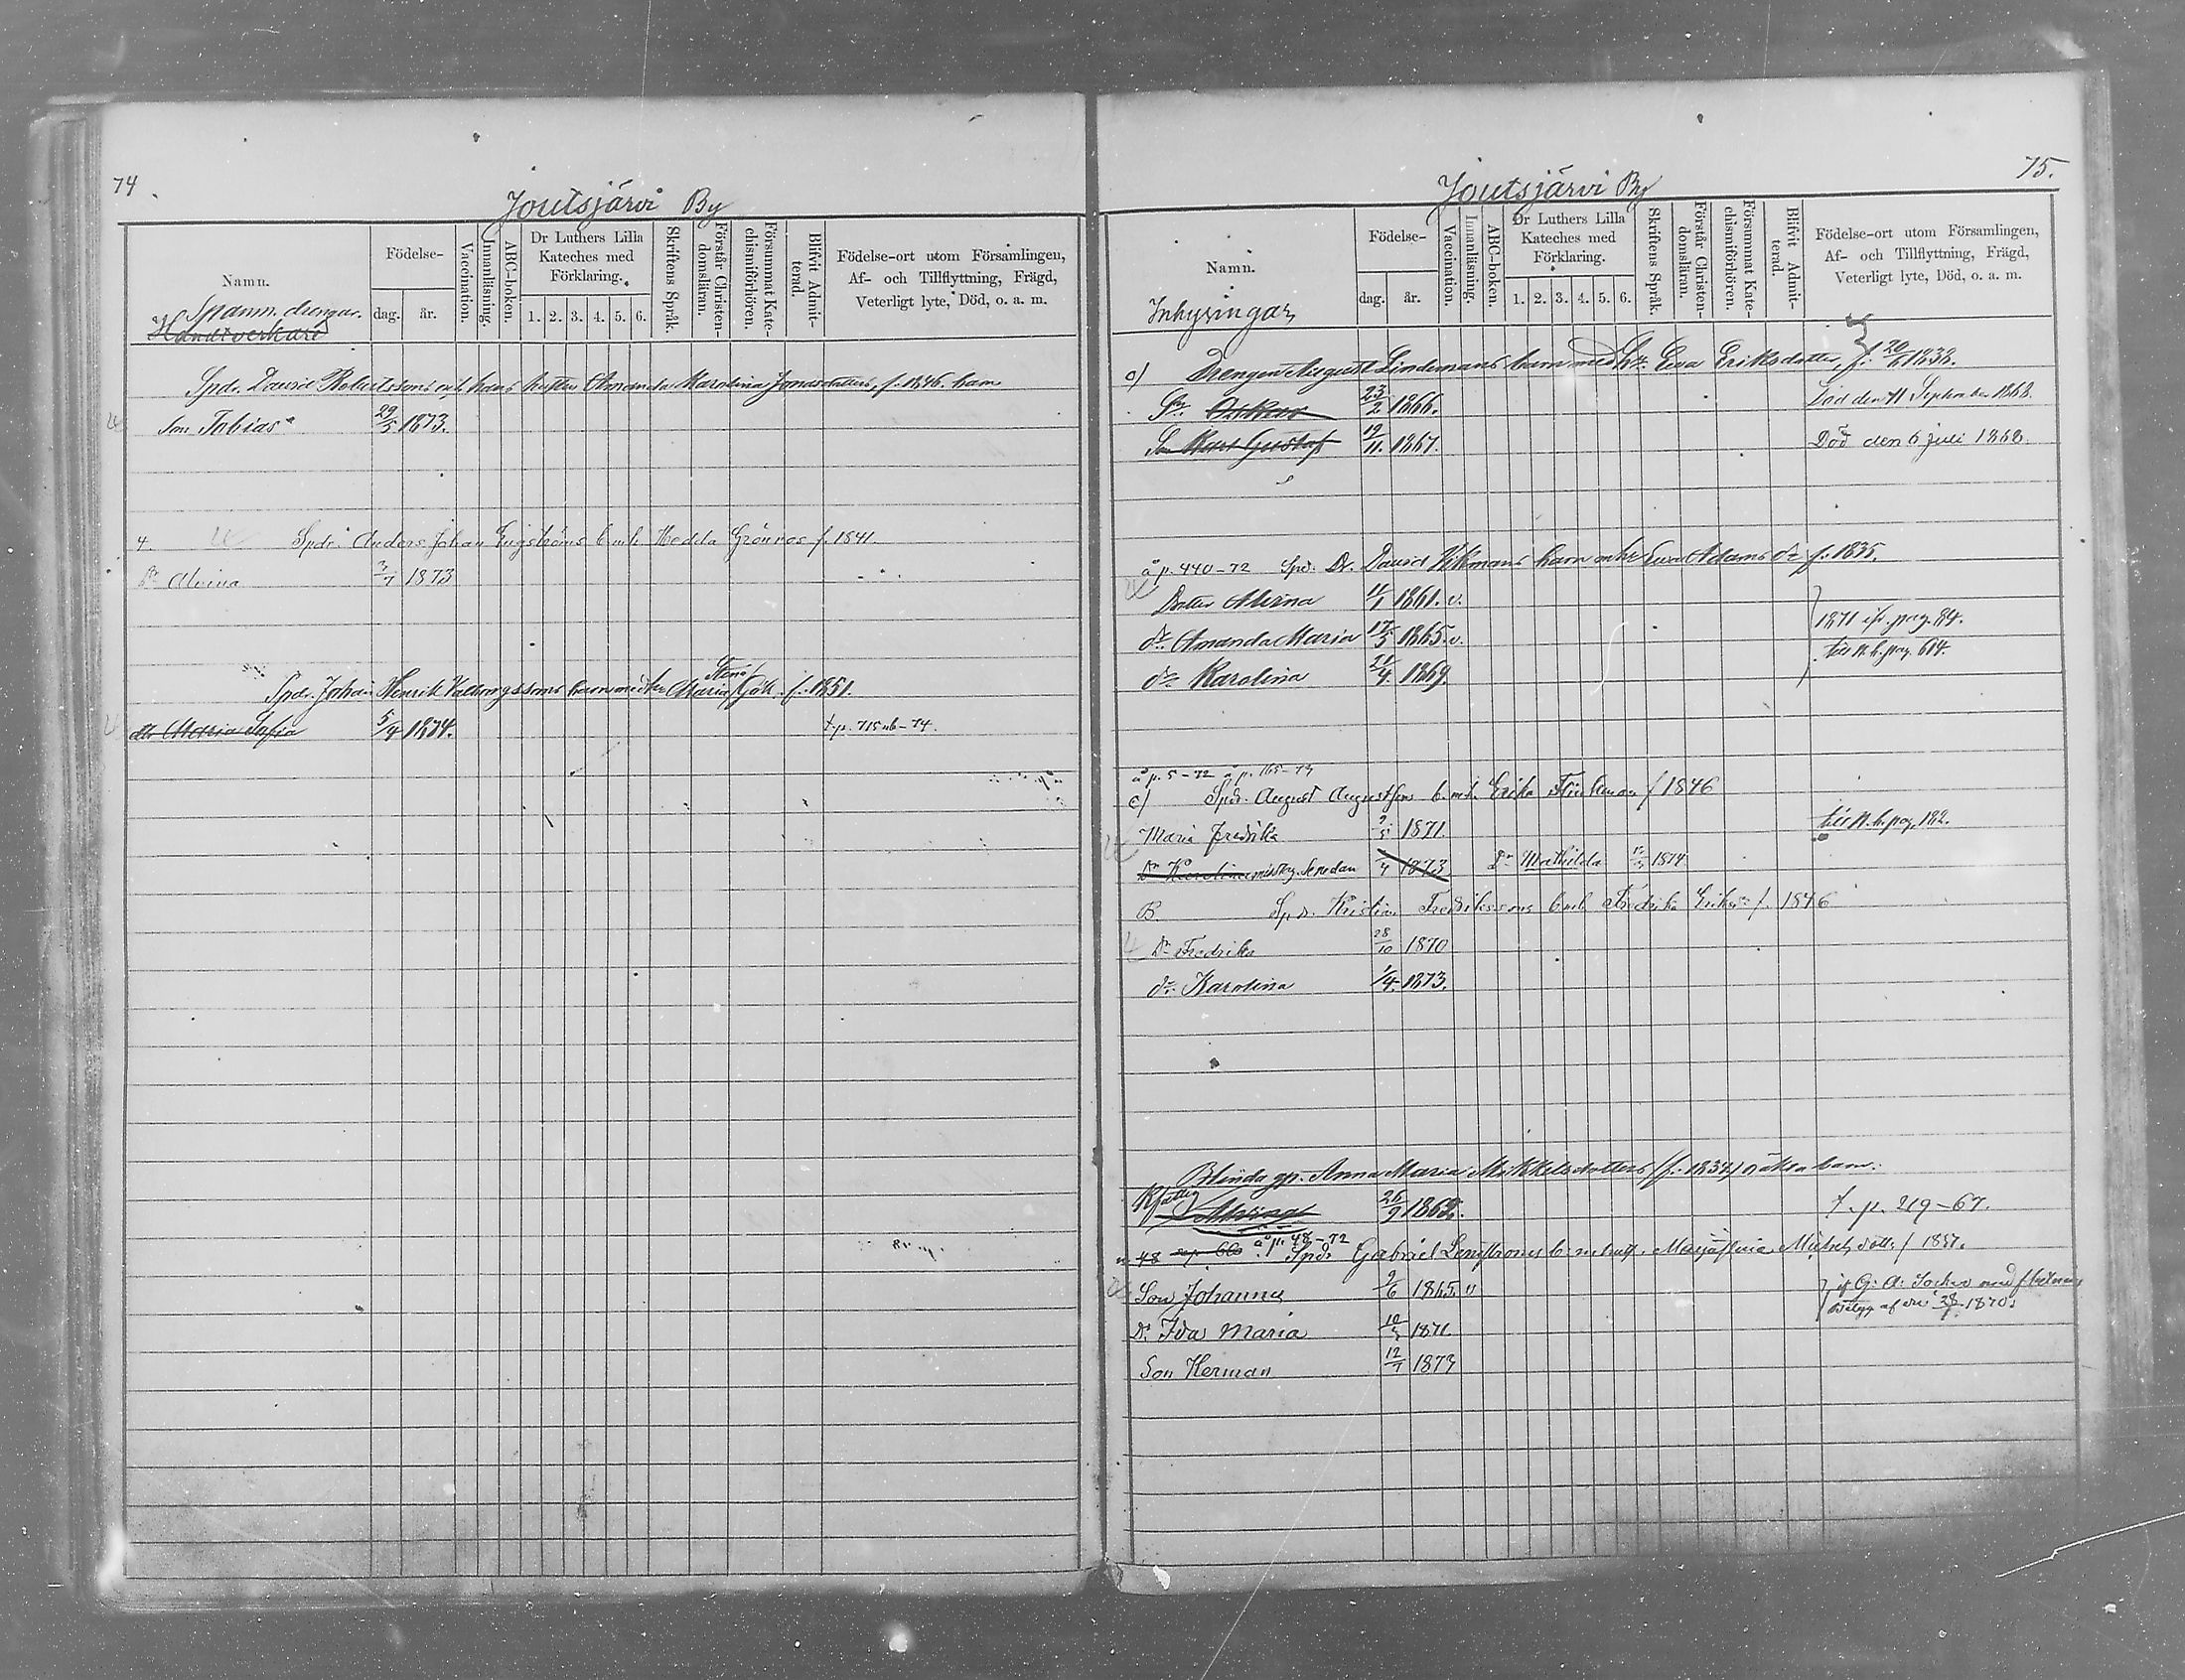 74
Joutsjärvi By
Namn.
Spanm. drengar.
Handtverkare
Födelse-
dag.
år.
Vaccination.
Innanläsning.
ABC-boken.
Dr Luthers Lilla
Kateches med
Förklaring.
1. 2. 3. 4. 5. 6.
Skriftens Språk.
Förstår Christen-
domsläran.
Försummat Kate-
chismiförhören.
Blifvit Admit-
terad.
Födelse-ort utom Församlingen,
Af- och Tillflyttning, Frägd,
Veterligt lyte, Död, o. a. m.
Spdr. David Robertssons och hans hustru Amanda Karolina Jonasdotters, f. 1846. barn
Son Tobias 29/5 1873.
4. Spdr. Anders Johan Engströms b. m. h. Hedda Grönroos f. 1841.
Dr Alvina 3/7 1873
Stena
Spdr. Johan Henrik Valborgssons barn med hu Maria Gök. f. 1851.
dtr Maria Sofia 5/4 1874. t. p. 715 nb-74.
75.
Joutsjärvi By
Namn.
Inhysingar
Födelse-
dag.
år.
Vaccination.
Innanläsning.
ABC-boken.
Dr Luthers Lilla
Kateches med
Förklaring.
1. 2. 3. 4. 5. 6.
Skriftens Språk.
Förstår Christen-
domsläran.
Försummat Kate-
chismiförhören.
Blifvit Admit-
terad.
Födelse-ort utom Församlingen,
Af- och Tillflyttning, Frägd,
Veterligt lyte, Död, o. a. m.
c) Drengen August Lindemans barn med h. Eva Eriksdotter, f. 1838.
Sn. Oskar 23/2 1866. Död den 11 September 1868.
Son Karl Gustaf 19/11. 1867. Död den 6 juli 1868.
å p. 440-72 Spd. Dr. David Vikmans barn m hu Eva Adams dr f. 1835.
Dotter Alvina 11/1 1861. v.
dr. Amanda Maria 17/5 1865. v. 1871 ifr. pag. 84.
dr Karolina 21/4. 1869. till N. b. pag. 614.
å p. 5-72 å p. 165-73
c) Spdr. August Augustsons b. m. h. Erika Flinkman f 1846
Maria Fredrika 9/5 1871. till N. b. pag. 182.
Dr Karolina 1873 Dr Mathilda 1874
B. Spdr. Kristian Fredrikssons b m h Fredrika Eriks f. 1846
Dr Fredrika 28/10 1870
dr. Karolina 1/4. 1873.
Blinda qp. Anna Maria Mikkelsdotters (f. 1832) oäkta barn:
Alvina 26/9 1862. t. p. 219-67.
48 å p. 48-72
Spdr Gabriel Lengströms b. m. hust. Michelsdott. f 1837.
Son Johannes 9/6 1865. "
af den 1870.
Dr. Ida Maria 10/5 1871.
Son Herman 12/1 1873